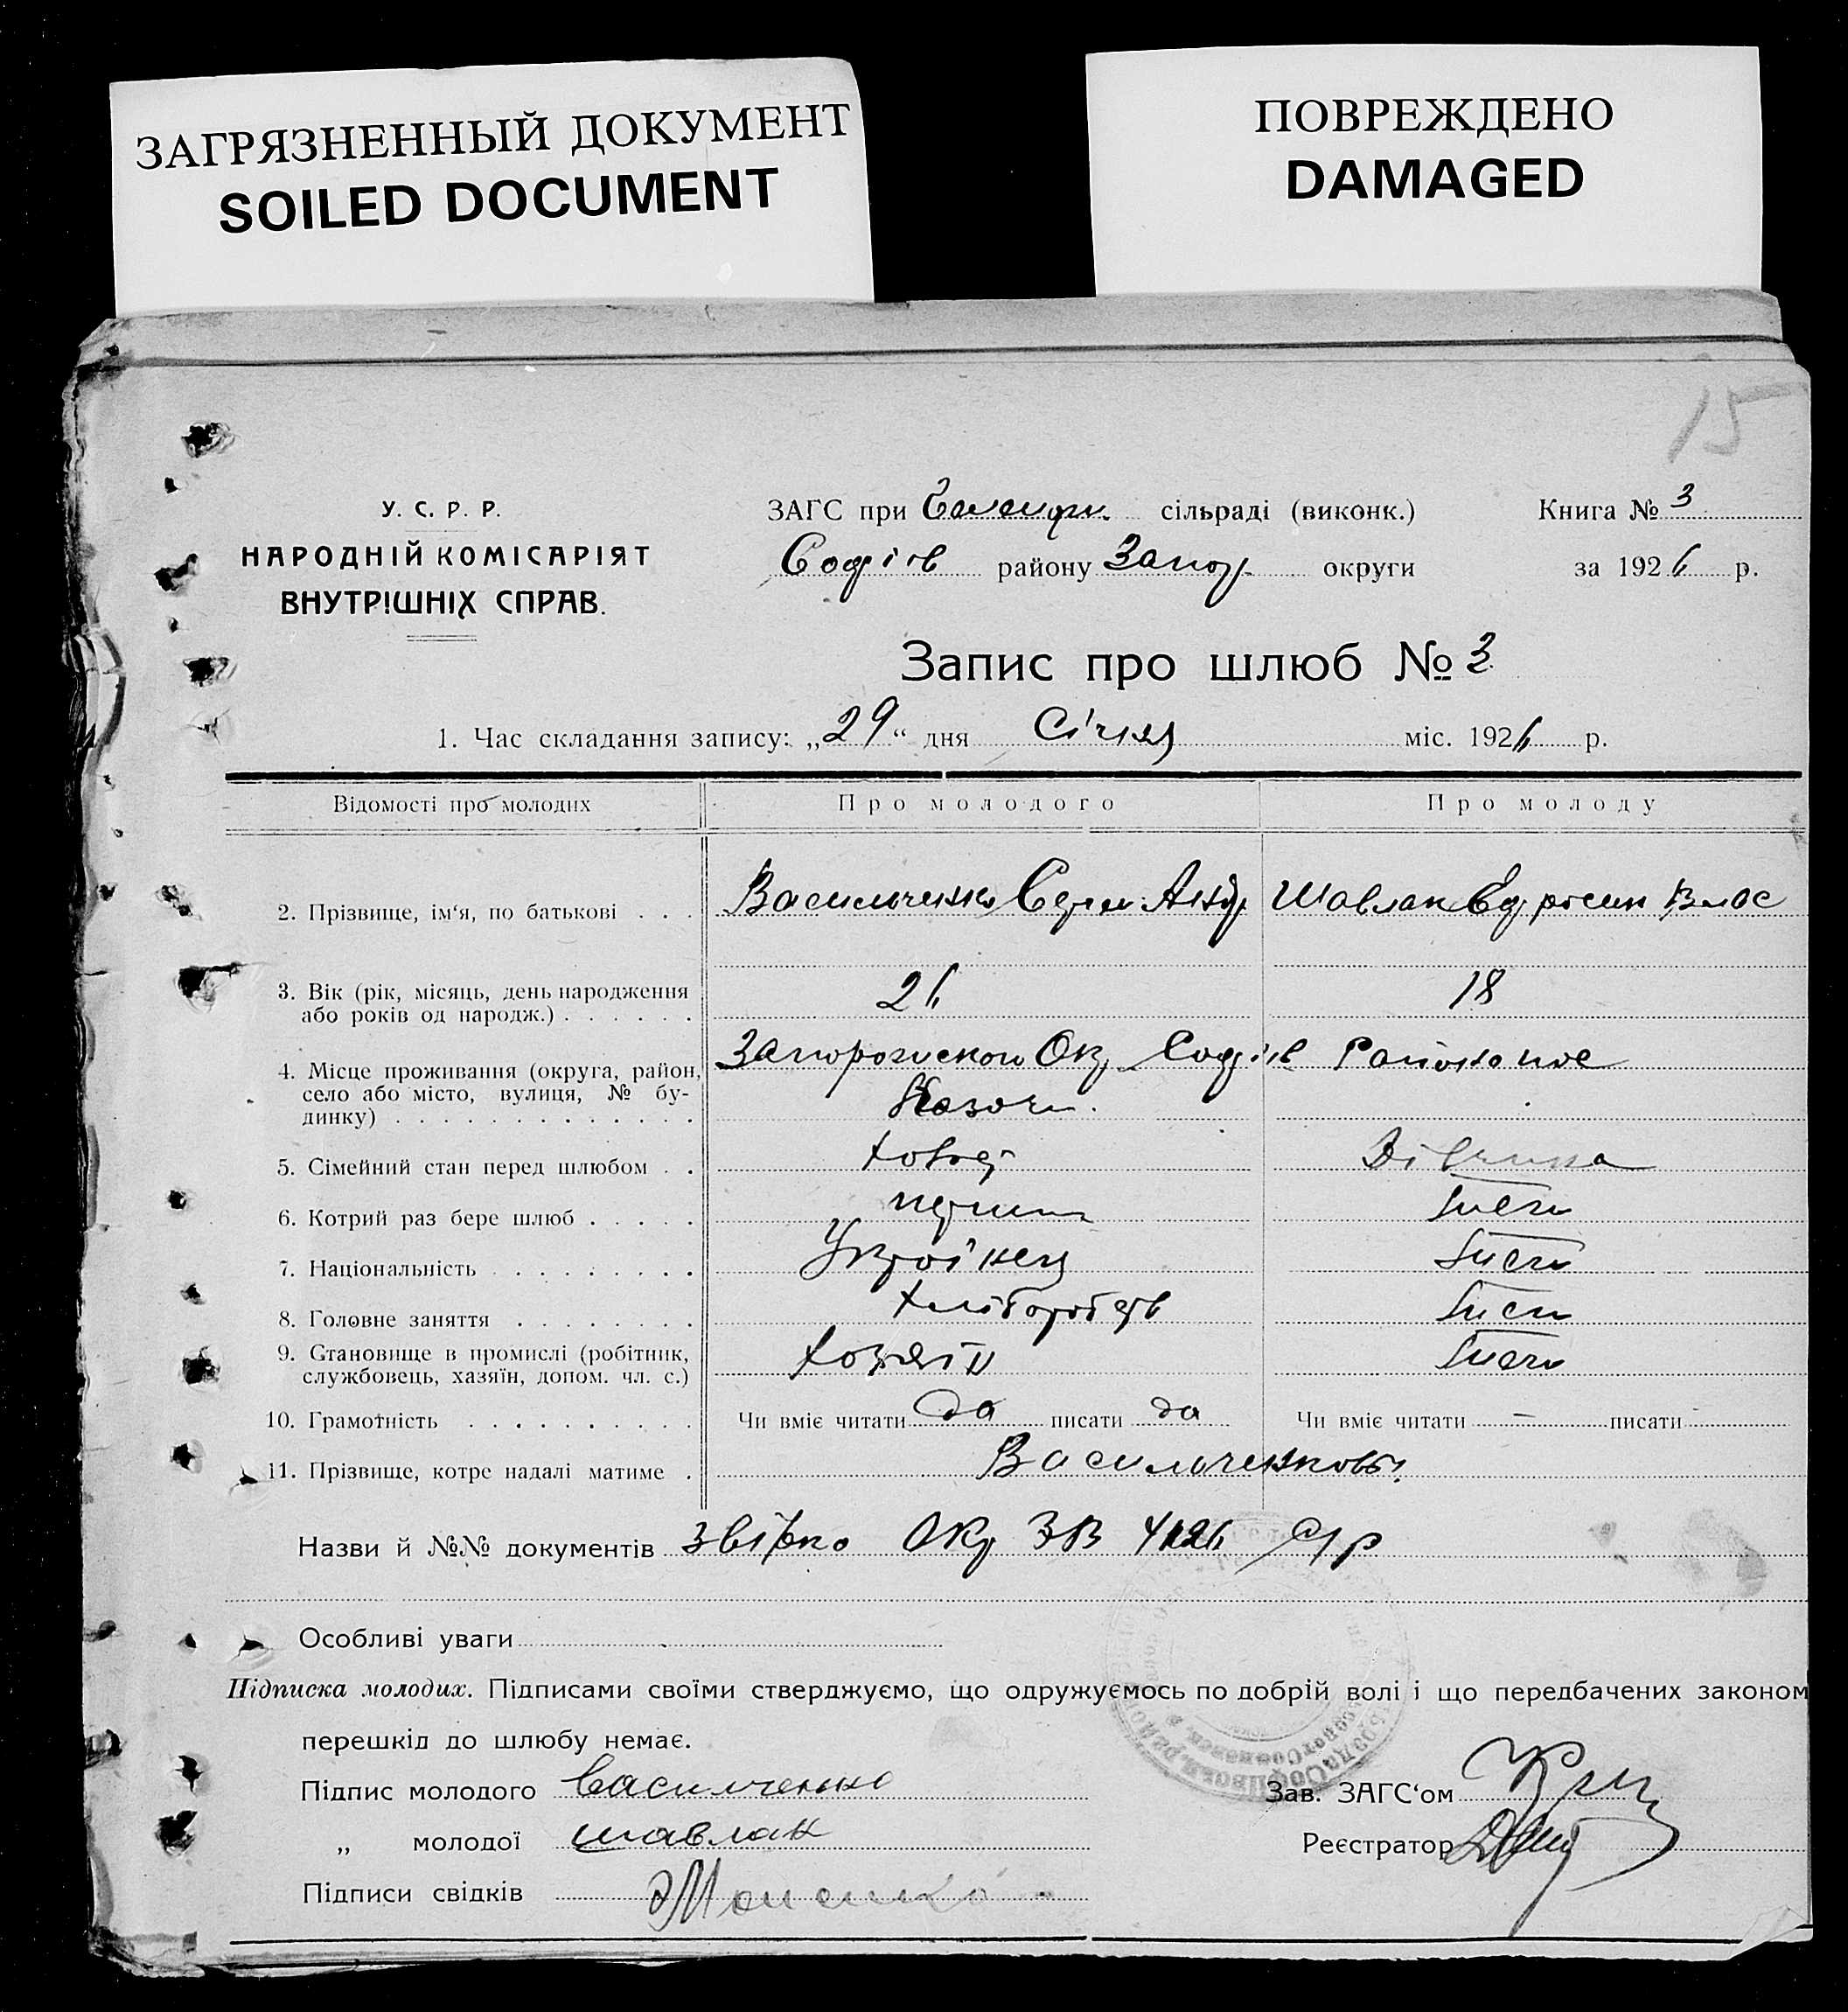 ЗАГРЯЗНЕННЫЙ ДОКУМЕНТ
SOILED DOCUMENT
ПОВРЕЖДЕНО
DAMAGED
15
У. С. Р. Р.
НАРОДНІЙ КОМІСАРІЯТ
ВНУТРІШНІХ СПРАВ.
ЗАГС при сільраді (виконк.)
Софіїв району Запор. округи
Книга № 3
за 1926 р.
Запис про шлюб № 3
1. Час складання запису: „29“ дня Січня міс. 1926 р.
Відомості про молодих Про молодого Про молоду
2. Прізвище, ім‘я, по батькові . . . Васильченко Серги Андр Шавлак Єфросин Влас
3. Вік (рік, місяць, день народження
або років од народж.) . . . . . . 26 18
4. Місце проживання (округа, район, Запорозиского Окр Софіїв Района пос
село або місто, вулиця, № бу-
динку) . . . . . . . . . . . . .
5. Сімейний стан перед шлюбом . . Дівчина
6. Котрий раз бере шлюб . . . . .
7. Національність . . . . . . . . Українец
8. Головне заняття . . . . . . . . хлібороб
9. Становище в промислі (робітник, хозяїн
службовець, хазяїн, допом. чл. с.)
10. Грамотність . . . . . . . . . . Чи вміє читати да писати да Чи вміє читати — писати
11. Прізвище, котре надалі матиме . Васильченкови
Назви й №№ документів Окр ЗВ
Особливі уваги
Підписка молодих. Підписами своїми стверджуємо, що одружуємось по добрій волі і що передбачених законом
перешкід до шлюбу немає.
Підпис молодого Василченко
„ молодої шавлак
Підписи свідків
Зав. ЗАГС‘ом
Реєстратор